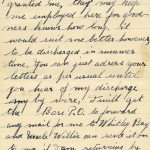 granted me, they may keep
me employed here for Good-
ness knows how long. It
would suit me better however
to be discharged in summer
time. You can just adress your
letters as per usual until
you hear of my discharge
by wire! I will get
the Base P.O. to forward
any mail for me to Whitby Ray
and Uncle Willie can send it on
if I am returning by